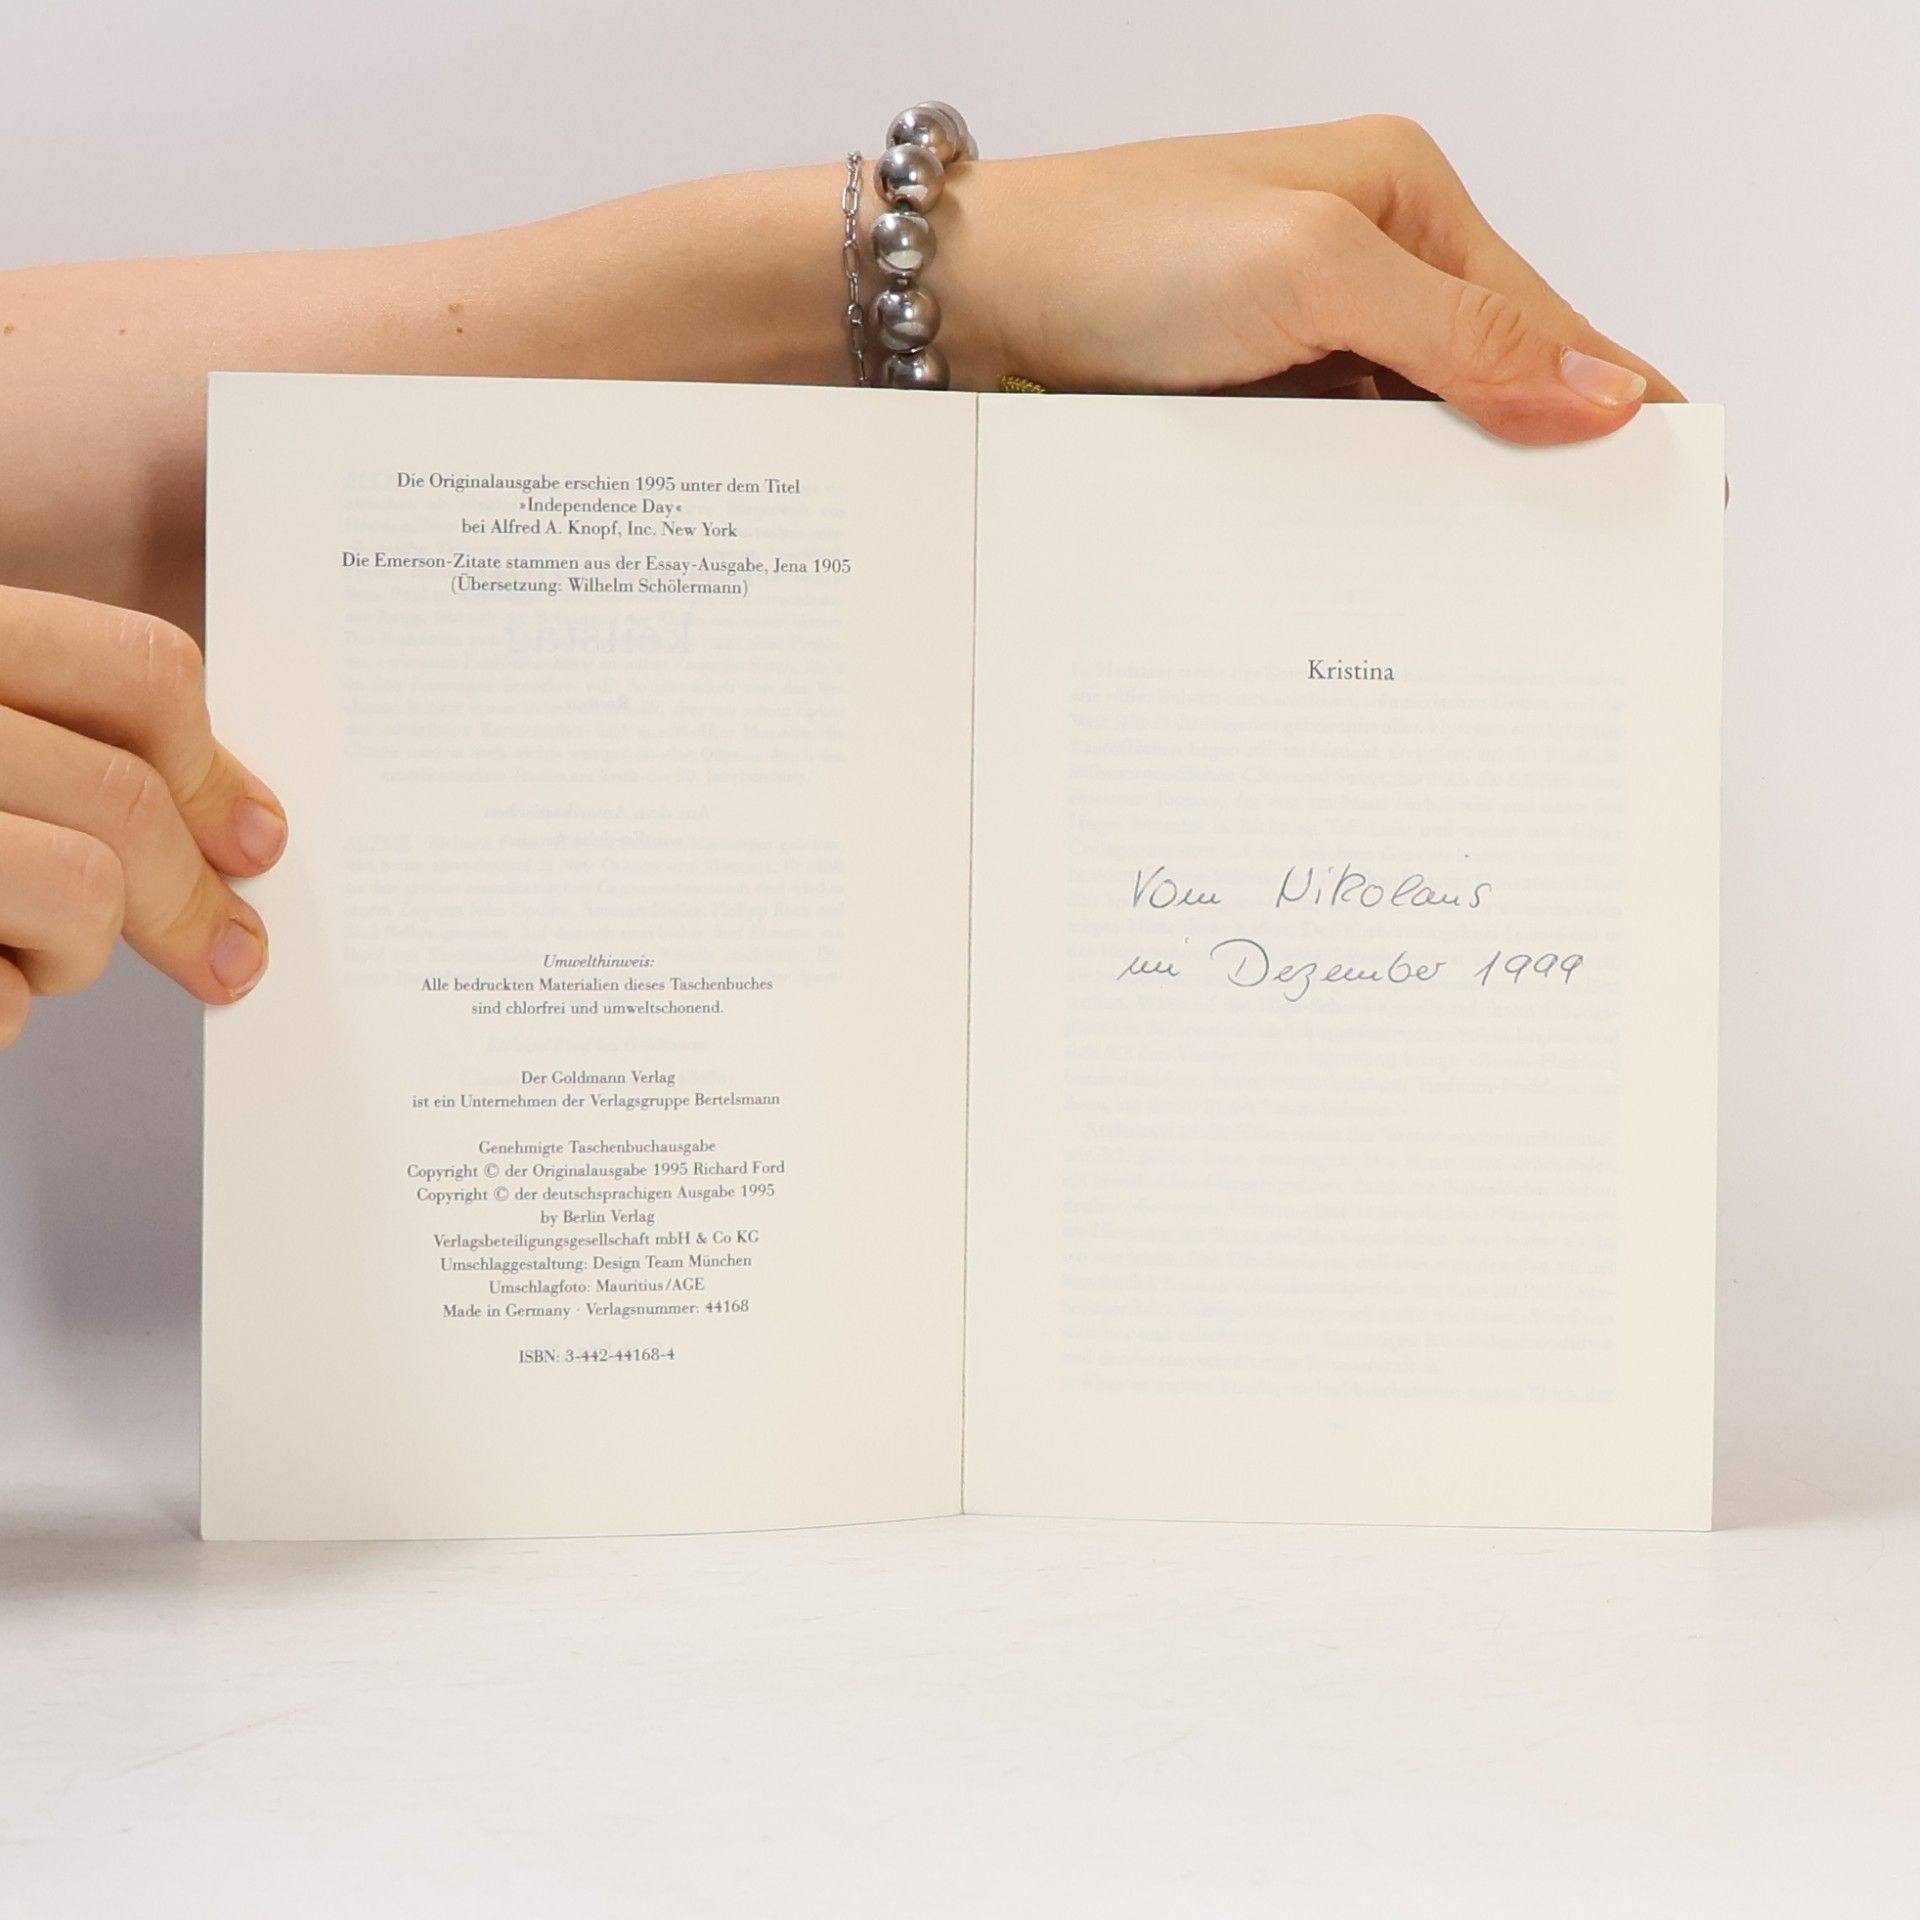 Die Originalausgabe erschien 1995 unter dem Titel
»Independence Day«
bei Alfred A. Knopf, Inc. New York
Die Emerson-Zitate stammen aus der Essay-Ausgabe, Jena 1905
(Übersetzung: Wilhelm Schölermann)
Umwelthinweis:
Alle bedruckten Materialien dieses Taschenbuches
sind chlorfrei und umweltschonend.
Der Goldmann Verlag
ist ein Unternehmen der Verlagsgruppe Bertelsmann
Genehmigte Taschenbuchausgabe
Copyright © der Originalausgabe 1995 Richard Ford
Copyright © der deutschsprachigen Ausgabe 1995
by Berlin Verlag
Verlagsbeteiligungsgesellschaft mbH & Co KG
Umschlaggestaltung: Design Team München
Umschlagfoto: Mauritius/AGE
Made in Germany · Verlagsnummer: 44168
ISBN: 3-442-44168-4
Kristina
Vom Nikolaus
im Dezember 1999